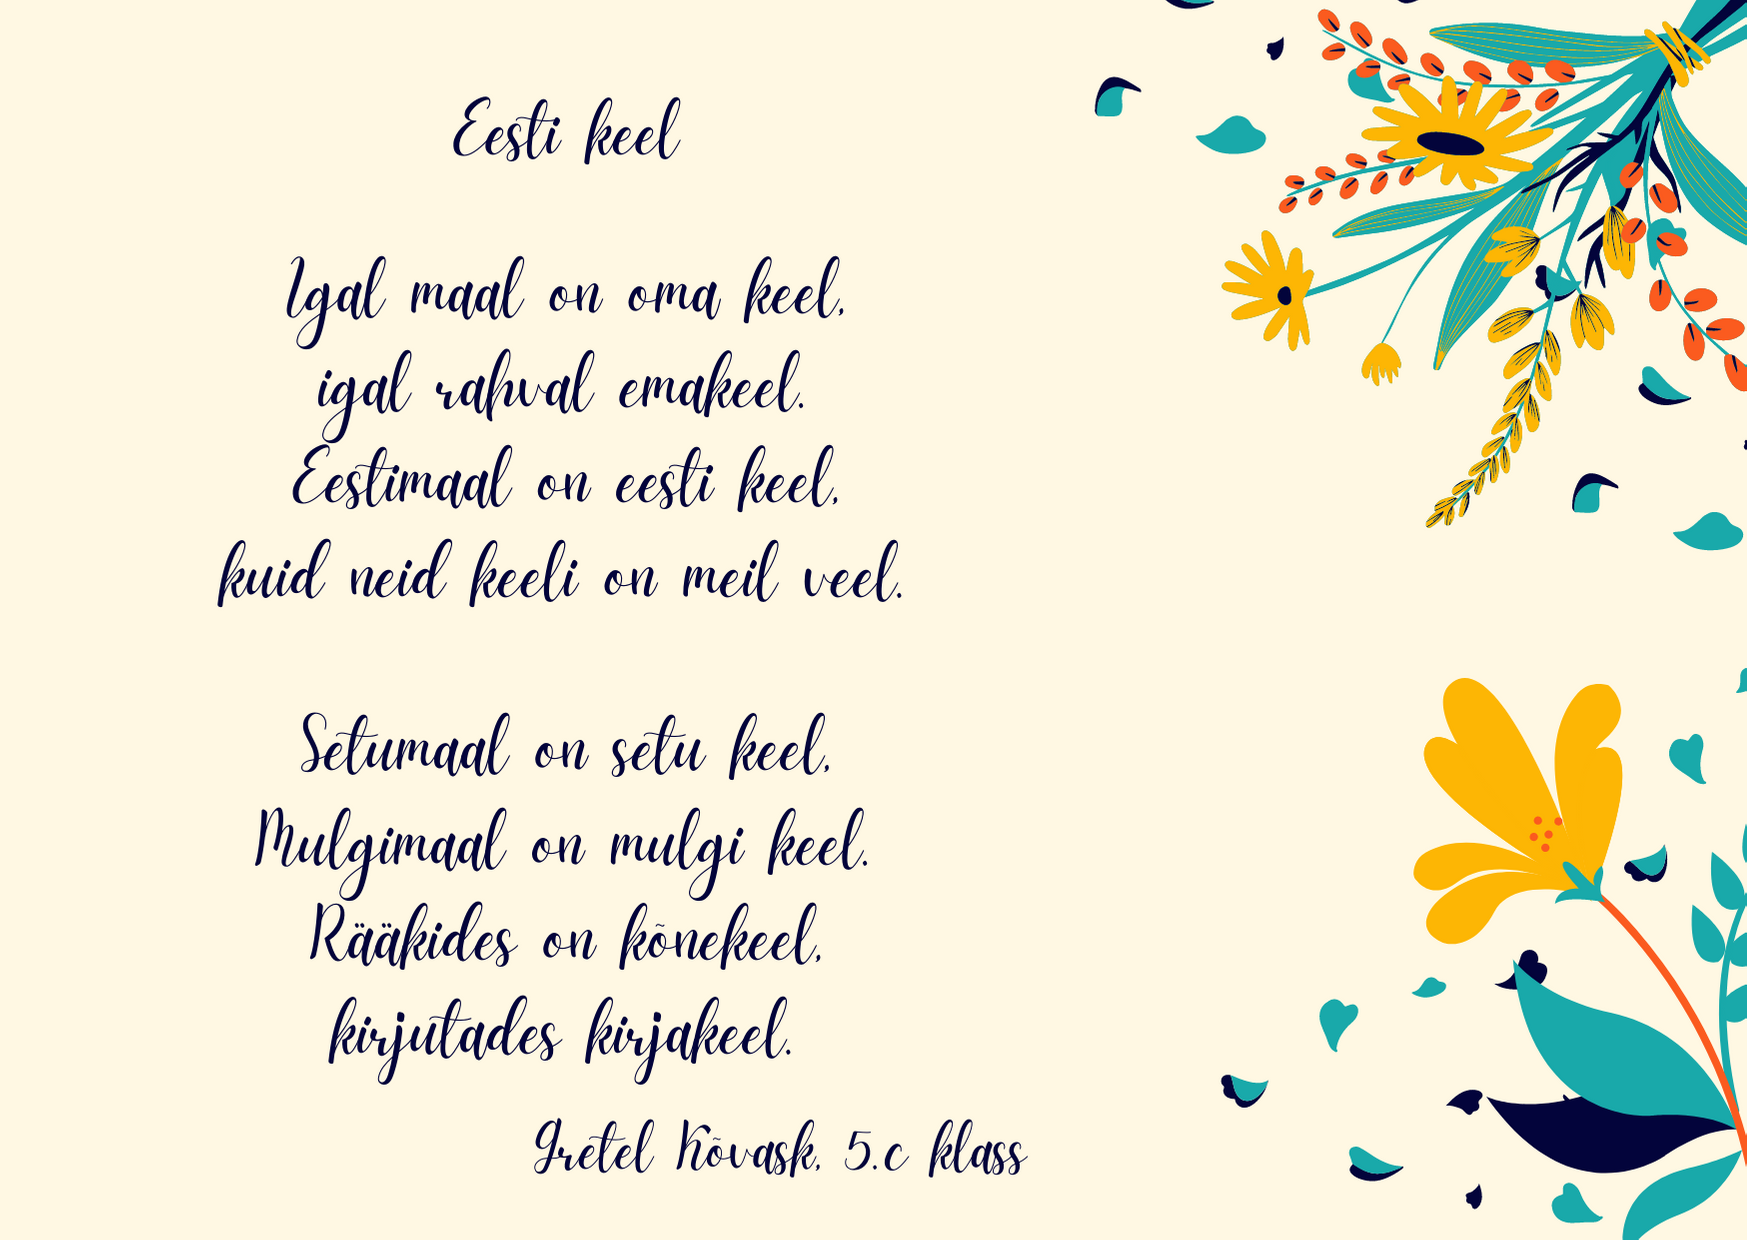 Eesti keel
Igal maal on oma keel,
igal rahval emakeel.
Eestimaal on eesti keel,
kuid neid keeli on meil veel.
Setumaal on setu keel,
Mulgimaal on mulgi keel.
Rääkides on kõnekeel,
kirjutades kirjakeel.
Gretel Kõvask, 5.c klass